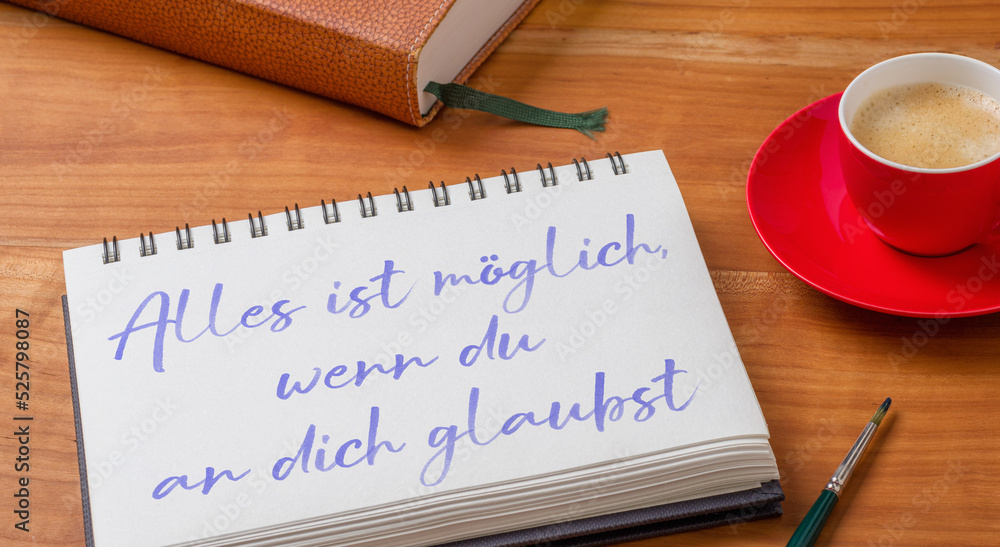 Alles ist möglich,
wenn du
an dich glaubst
Adobe Stock | #525798087